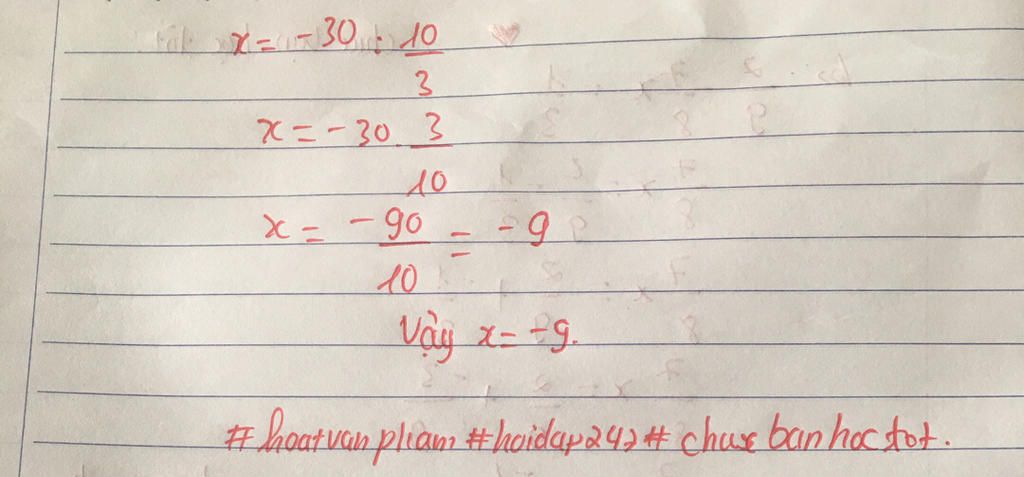 x = -30 : 10/3
x = -30 . 3/10
x = -90/10 = -9
Vậy x = -9.
#hoatvanpham #hoidap247# chuc ban hoc tot.